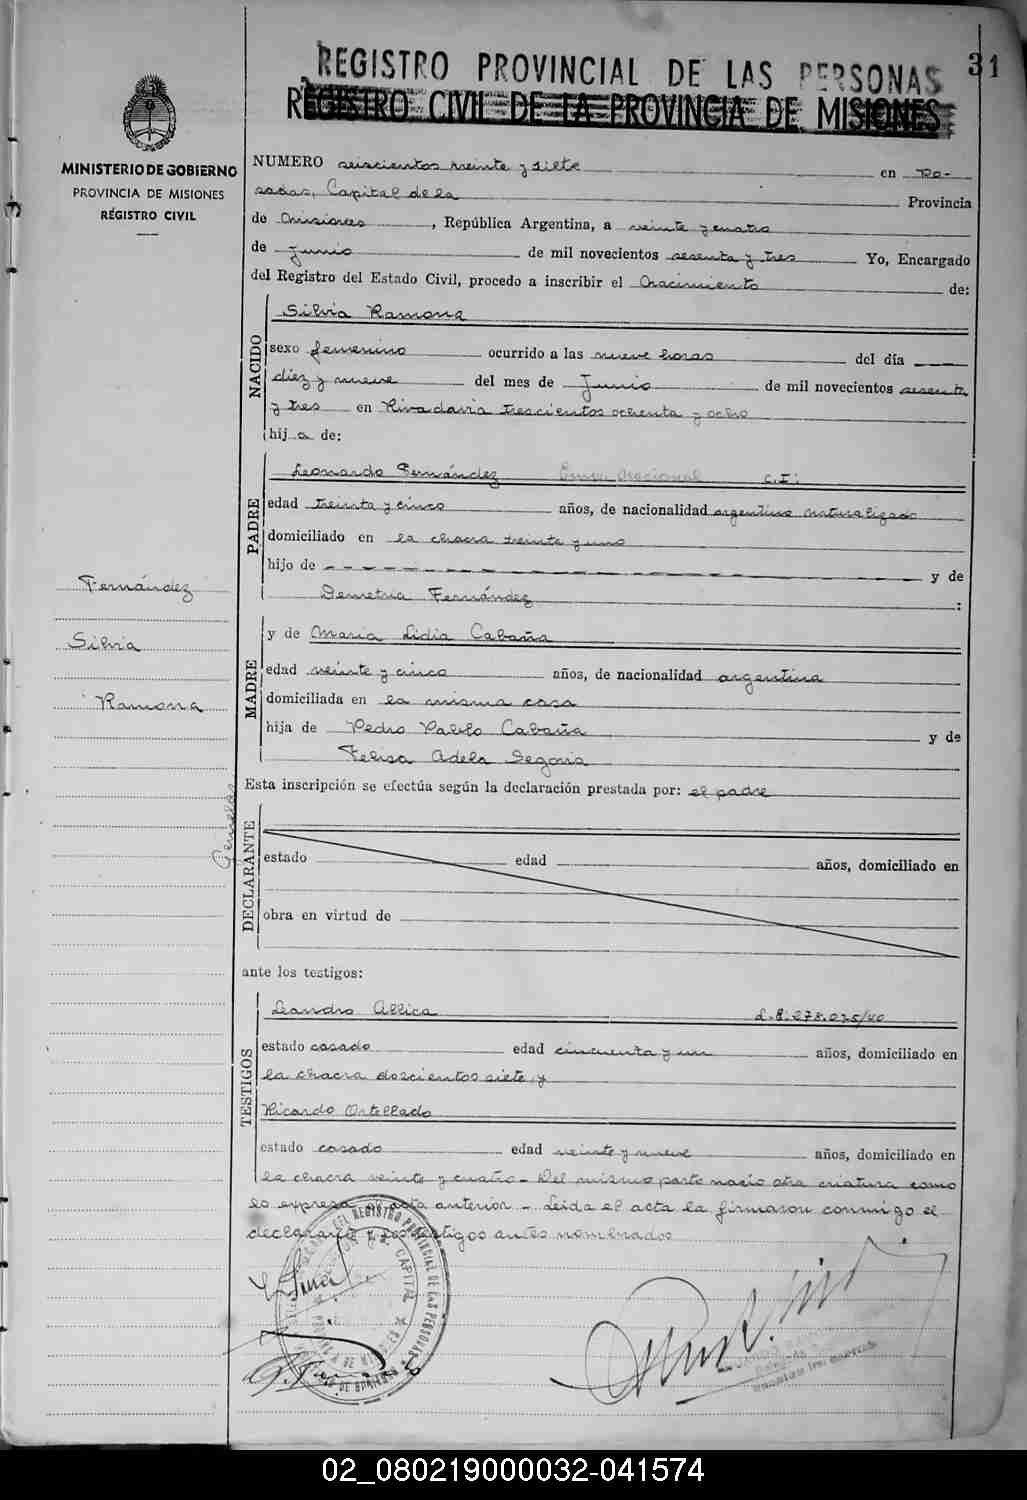 31
REGISTRO PROVINCIAL DE LAS PERSONAS
REGISTRO CIVIL DE LA PROVINCIA DE MISIONES
MINISTERIO DE GOBIERNO
PROVINCIA DE MISIONES
REGISTRO CIVIL
NUMERO seiscientos treinta y siete en Po-
sadas, Capital de la Provincia
de Misiones, República Argentina, a veinte y cuatro
de Junio de mil novecientos sesenta y tres Yo, Encargado
del Registro del Estado Civil, procedo a inscribir el Nacimiento de:
NACIDO
Silvia Ramona
sexo femenino ocurrido a las nueve horas del día
diez y nueve del mes de Junio de mil novecientos sesenta
y tres en Rivadavia trescientos ochenta y ocho
hij a de:
PADRE
Leonardo Fernández C.I:
edad treinta y cinco años, de nacionalidad argentino naturalizado
domiciliado en la chacra treinta y uno
hijo de y de
Demetria Fernández :
MADRE
y de Maria Lidia Cabaña
edad veinte y cinco años, de nacionalidad argentina
domiciliada en la misma casa
hija de Pedro Pablo Cabaña y de
Felisa Adela Segovia
Esta inscripción se efectúa según la declaración prestada por: el padre
DECLARANTE
estado edad años, domiciliado en
obra en virtud de
ante los testigos:
TESTIGOS
Leandro Allica L.8.278.025/40
estado casado edad cincuenta y un años, domiciliado en
la chacra doscientos siete, y
Ricardo Ortellado
estado casado edad veinte y nueve años, domiciliado en
la chacra veinte y cuatro - Del mismo parto nació otra criatura como
lo expresa el acta anterior - Leida el acta la firmaron conmigo el
declarante y los testigos antes nombrados
Fernández
Silvia
Ramona
Gemelas
DEL REGISTRO PROVINCIAL DE LAS PERSONAS
CAPITAL
02_080219000032-041574